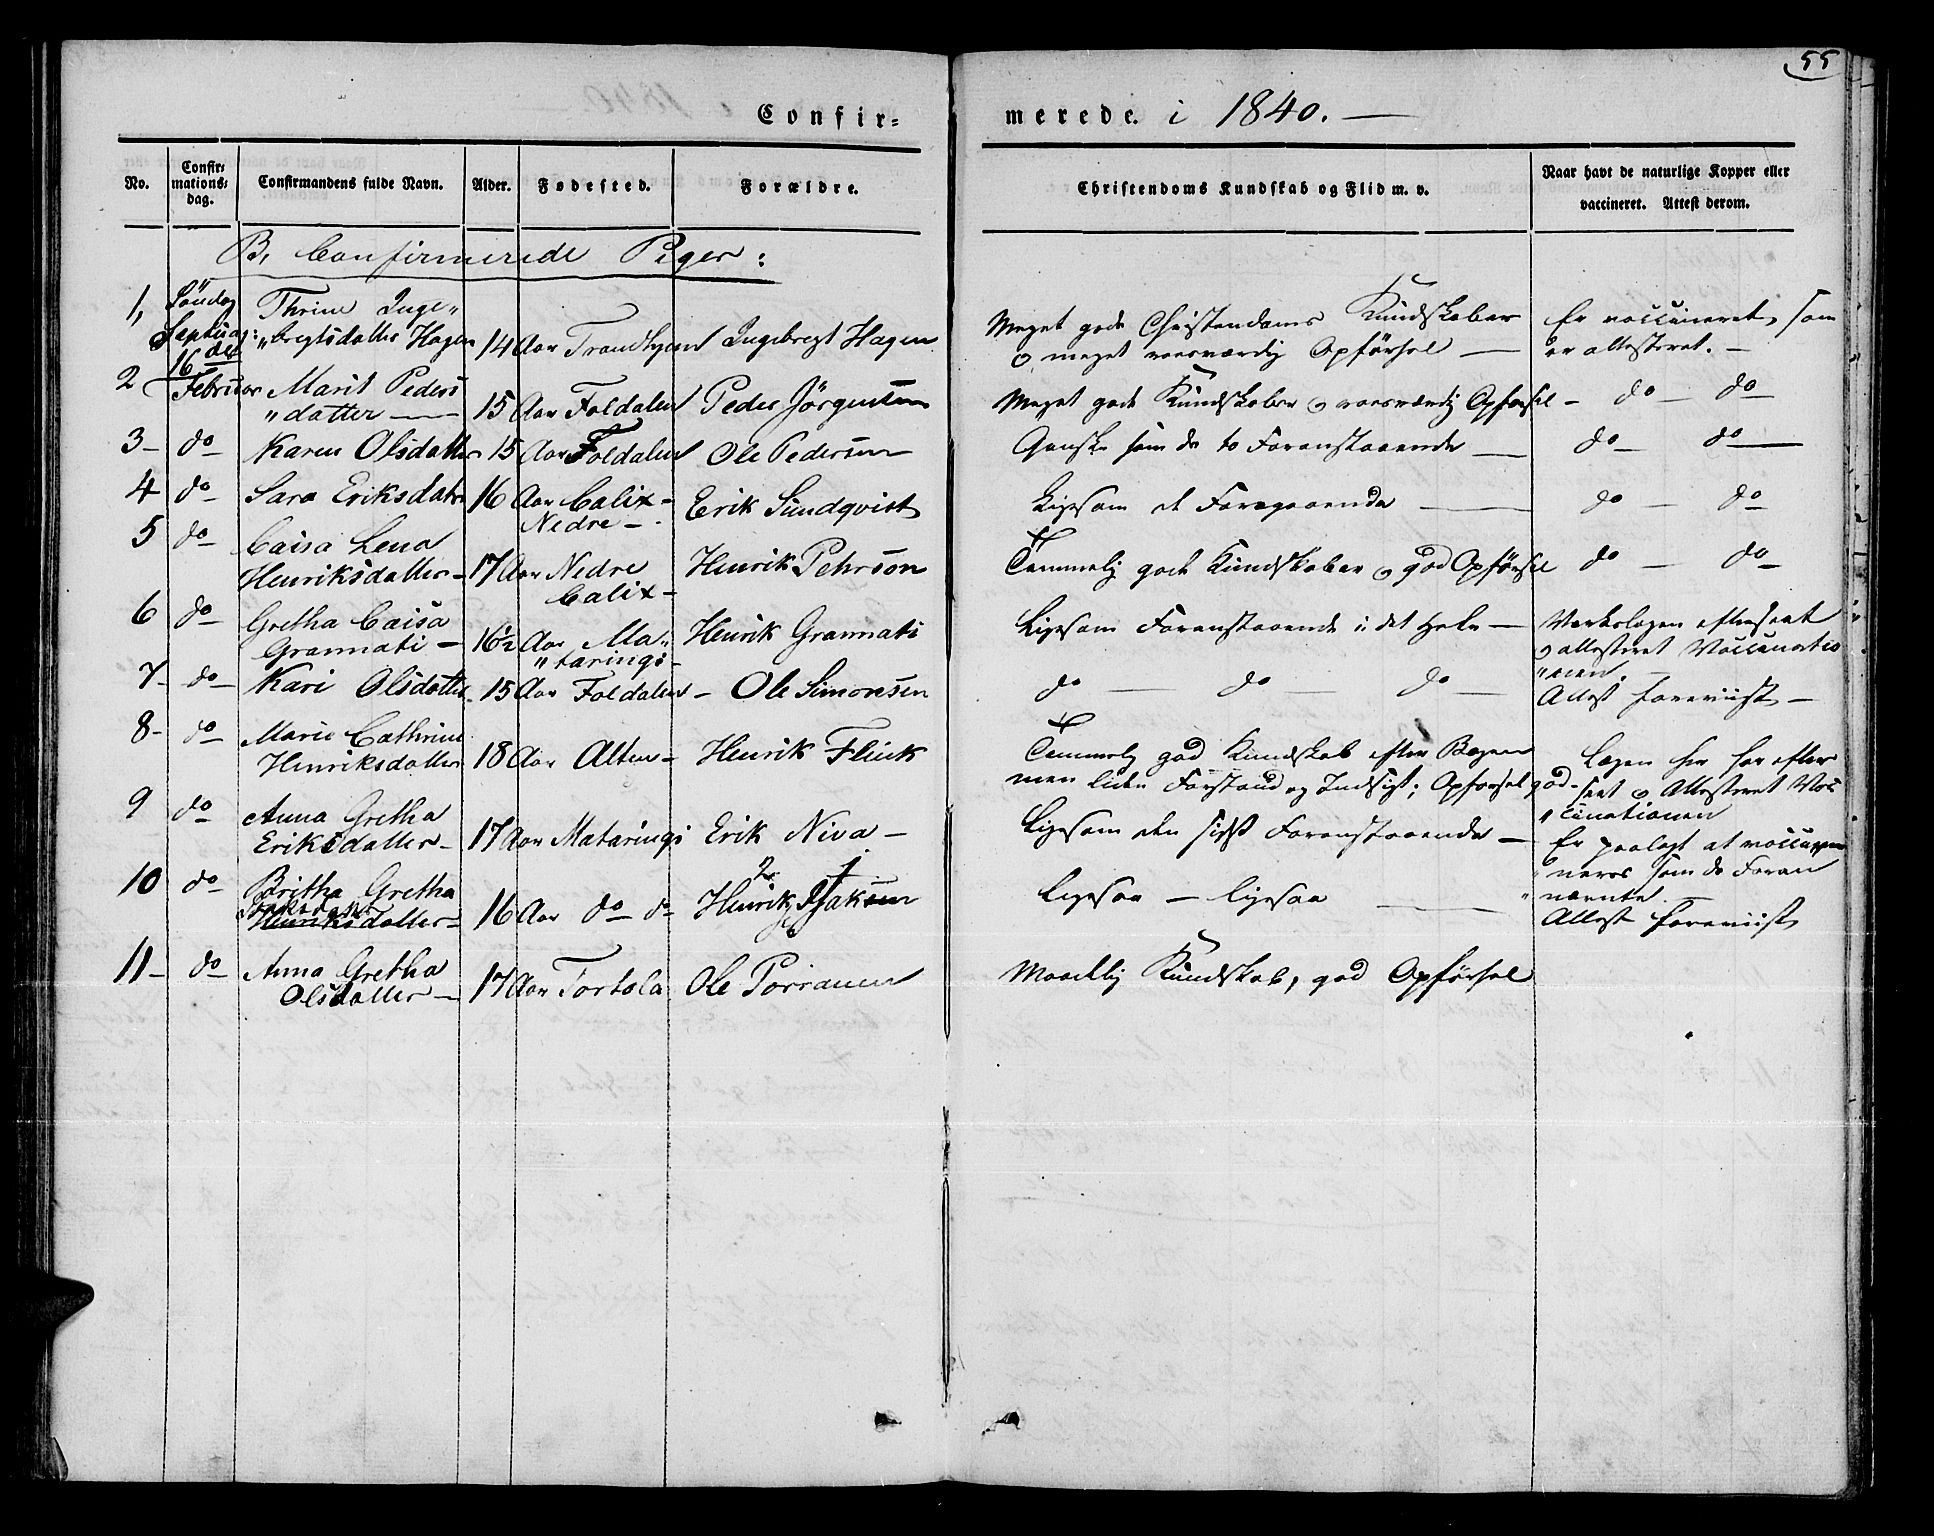 55
Confir=
merede. i 1840. —
No.
Confir=
mations=
dag.
Confirmandens fulde Navn.
Alder.
Fødested.
Forældre.
Christendoms Kundskab og Flid m. v.
Naar havt de naturlige Kopper eller
vaccineret. Attest derom.
B, Confirmerede Piger:
1, Søndag Thrine Inge„
Septuag: „bregtsdatter Hagen 14 Aar Trondhjem Ingebregt Hagen
16de
Meget gode Christendoms Kundskaber
og meget roesværdig Opførsel —
Er vaccineret, som
er attesteret. —
2 Februar Marit Peders
„datter — 15 Aar Foldalen Peder Jørgensen
Meget gode Kundskaber og roesværdig Opførsel — do — do
3 — do Karen Olsdatter 15 Aar Foldalen Ole Pedersen
Ganske som de to Foranstaaende — do — do —
4 do Sara Eriksdatr 16 Aar Calix- Erik Sundqvist
Nedre —
Ligesom et Foregaaende — do — do
5 do Caisa Lena
Henriksdatter — 17 Aar Nedre Henrik Pehrson
Calix —
Temmelig gode Kundskaber og god Opførsel do — do
6 do Gretha Caisa
Grannati — 16½ Aar Ma„ Henrik Grannati
„taringi —
Ligesom Foranstaaende i det Hele —
Værkslægen efterseet
og attesteret Vaccinatio
„nen. —
7 — do — Kari Olsdatter 15 Aar Foldalen — Ole Simonsen
do — do do —
Attest foreviist —
8 — do Marie Cathrine
Henriksdatter 18 Aar Alten — Henrik Flink
Temmelig god Kundskab efter Bogen
men liden Forstand og Indsigt; Opførsel god —
Lægen her har efter
seet og Attesteret Vac
„cinationen
9 do Anna Gretha
Eriksdatter — 17 Aar Mataringi Erik Niva —
Ligesom den sidst Foranstaaende —
Er paalagt at
som de Foran
nævnte. —
10 do Britha Gretha
Henriksdatter — 16 Aar do do Henrik Isaksen
Ligesaa — ligesaa —
Attest foreviist
11 — do Anna Gretha
Olsdatter — 17 Aar Tortola Ole Porranen
Maadelig Kundskab, god Opførsel